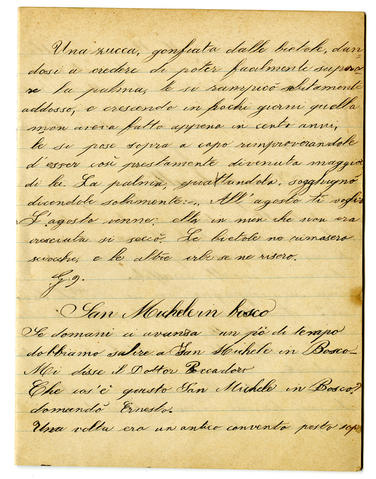 Una zucca, gonfiata dalle bietole, dan-
dosi a credere di poter facilmente supera-
re la palma, le si rampicò subitamente
addosso, e crescendo in pochi giorni quella
non aveva fatto appena in cento anni,
le se pose sopra a capo rimproverandole
d'esser così prestamente divenuta maggior
di lei. La palma, guattandola, sogghignò
dicendole solamente:, All' agosto ti
L'agosto venne: ella in men che non era
cresciuta si seccò. Le bietole ne rimasero
sciocche, e le altre erbe se ne risero.
G. g.
San Michele in bosco
Se domani ci avanza un pò di tempo
dobbiamo salire a San Michele in Bosco-
Mi disse il Dottor Beccadoro
Che cos'è questo San Michele in Bosco?
domandò Ernesto.
Una volta era un antico convento posto sop